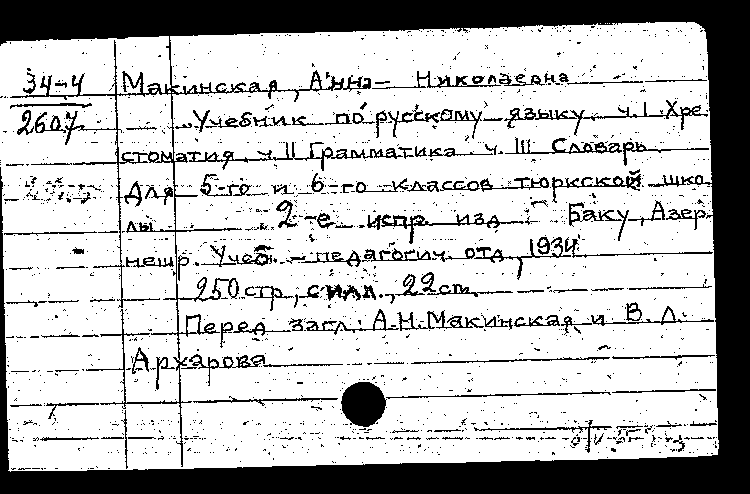 34-4 Макинская, Анна Николаевна
2607 Учебник по русскому языку. ч. I Хре
стоматия. ч. II Грамматика ч. III Словарь.
Для 5-го и 6-го классов тюркской шко
лы. 2-е испр. изд Баку, Азер
нешр. Учеб. - педагогич. отд, 1934
250 стр, с илл., 22 cm.
Перед загл.: А.Н. Макинская и В. Л.
Архарова